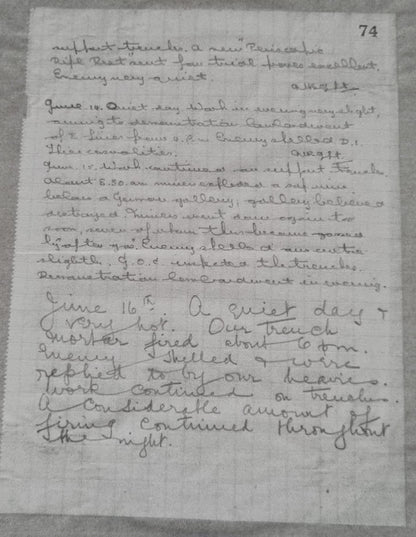 74
support trench. A new "Periscopic
Rifle Rest" sent for trial proves excellent.
Enemy very quiet.
June 14. Quiet day. Work in evening very slight,
owing to demonstration bombardment
of E. lines from Enemy shelled D.1.
Three casualties.
June 15. Work continued on support trench.
About 8.30 our miners exploded a sap mine
below a German gallery, gallery believed
destroyed. Miners went down again too
soon, seven of whom thus became gassed
by after gas. Enemy shelled our centre
slightly. G.O.C. inspected the trenches.
Demonstration bombardment in evening.
June 16th. A quiet day &
very hot. Our Trench
mortar fired about 6 pm.
Enemy shelled & were
replied to by our heavies.
Work continued on trenches.
A considerable amount of
firing continued throughout
the night.